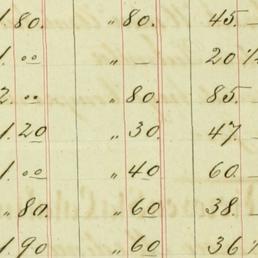 1.80. " 80. 45.
1. 00 " — 20 1/
2. 00 " 80. 85.
1.20 " 30. 47.
1. 00 " 40 60
" 80. " 60 38.
1.90 " 60 36